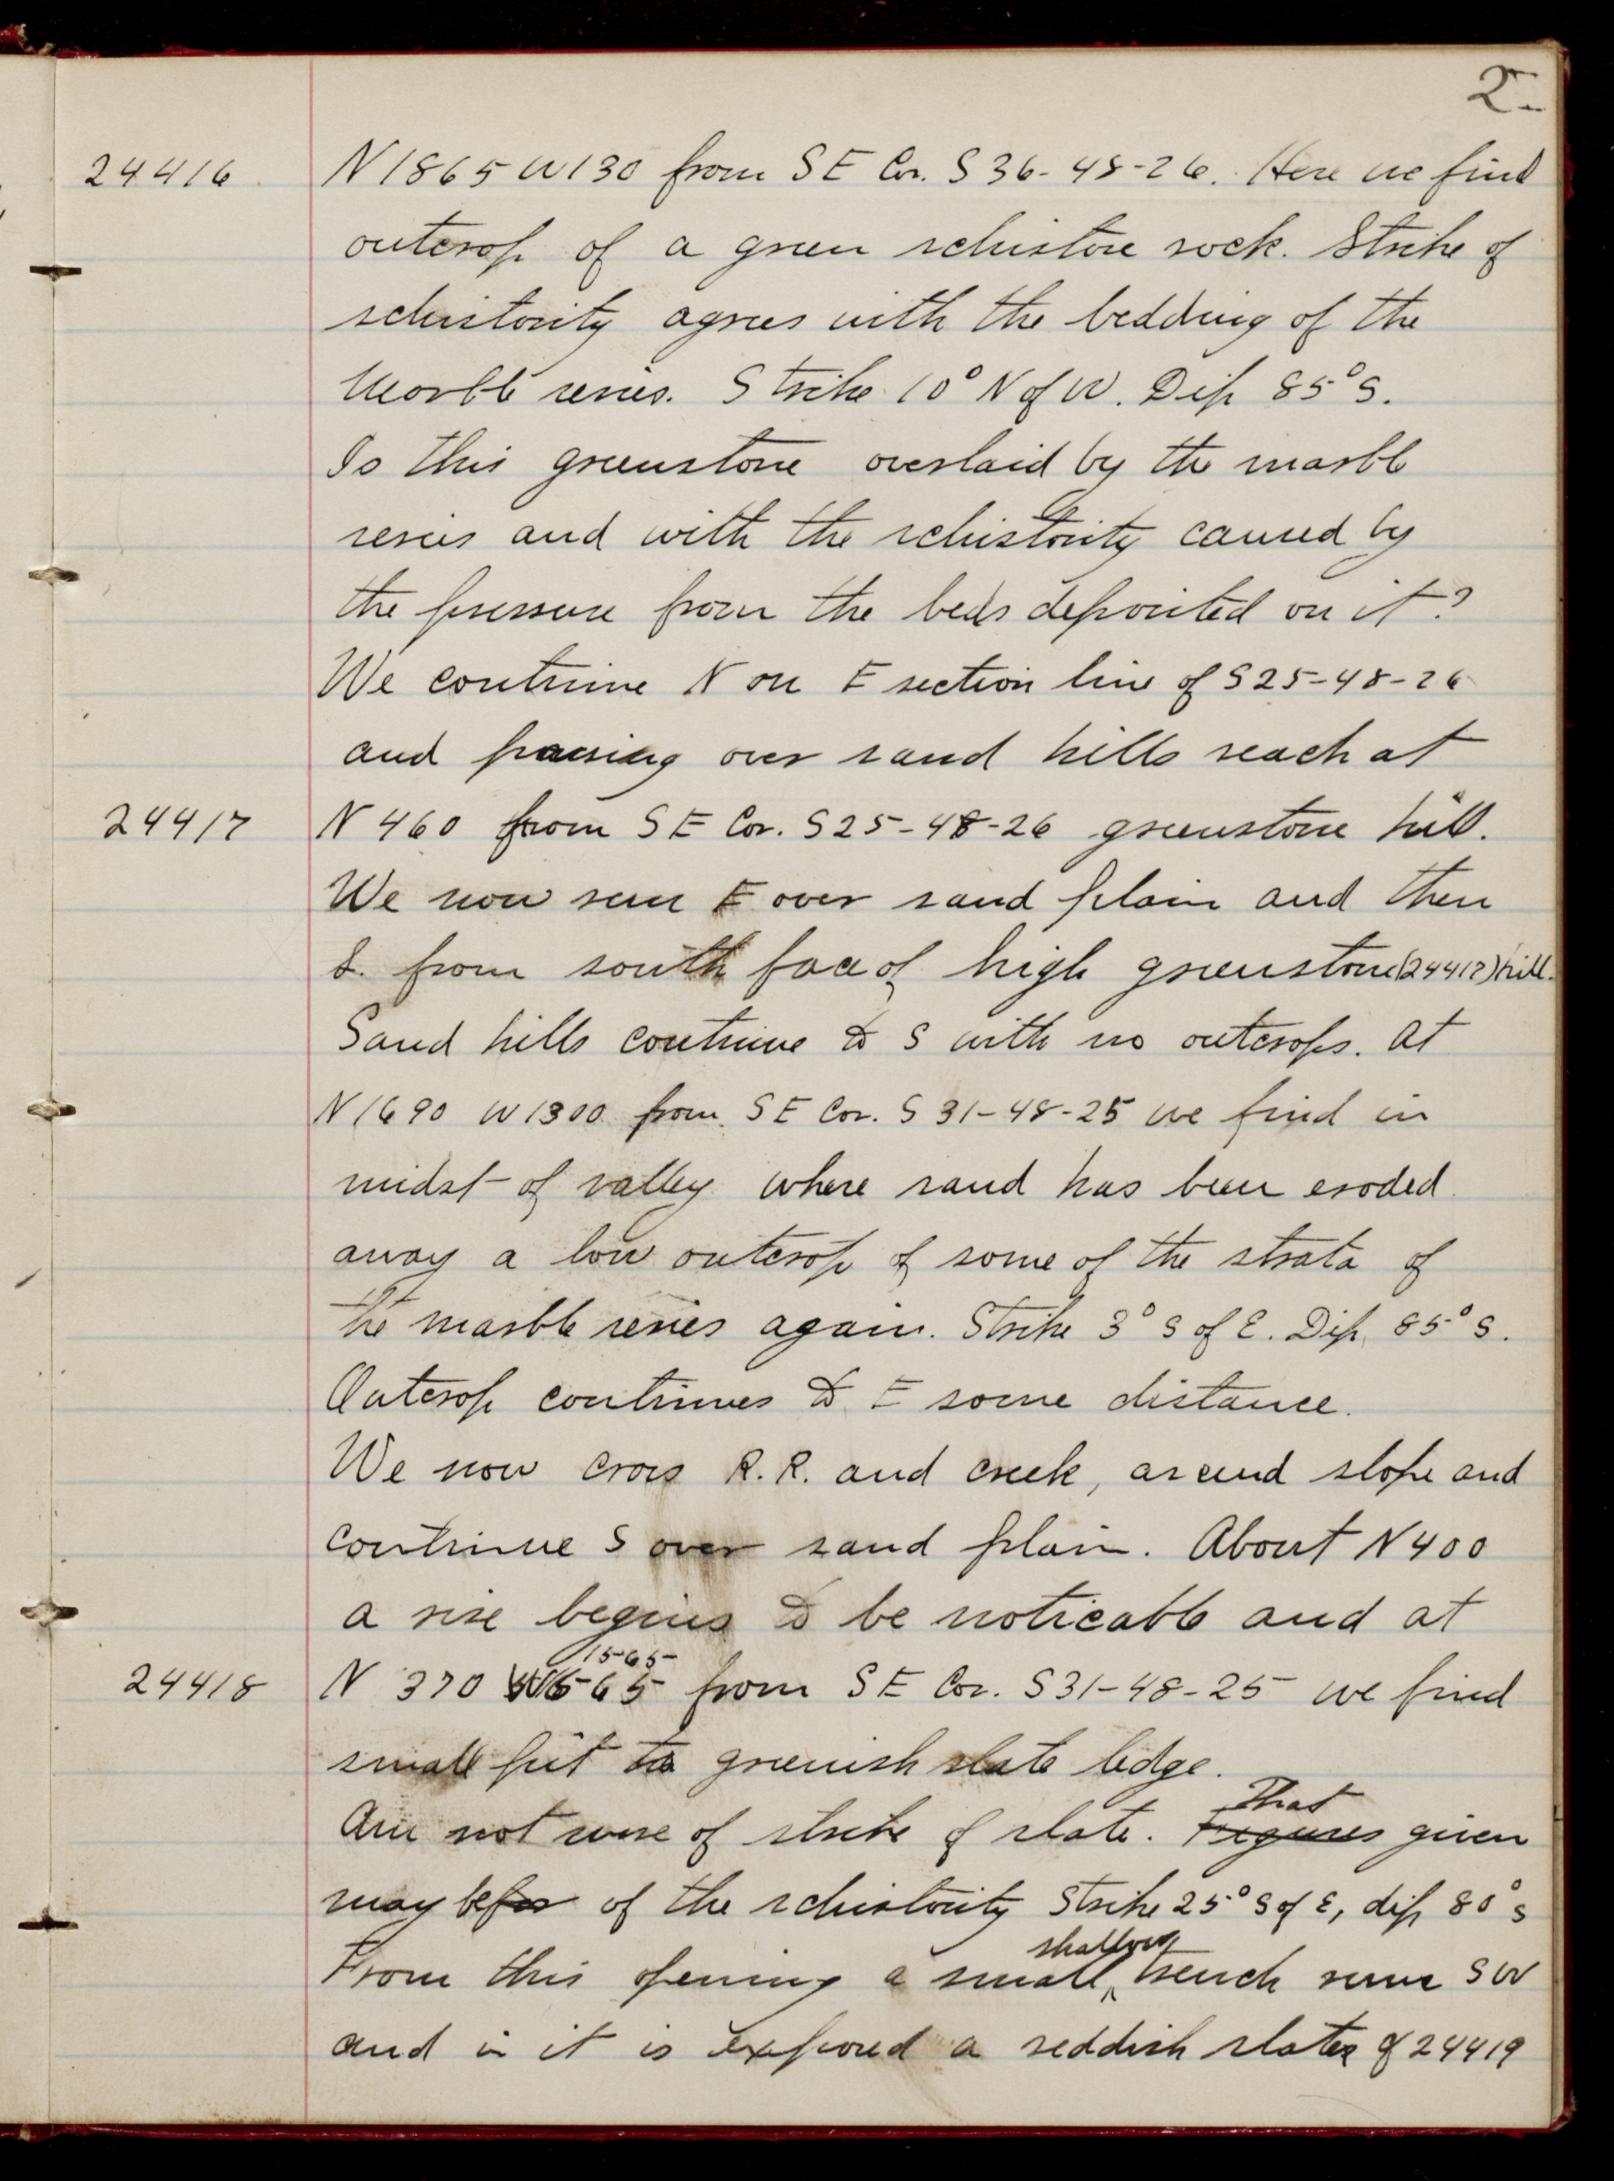 2
24416 N1865 W130 from SE Cor. S36-48-26. Here we find
outcrop of a green schistose rock. Strike of
schistosity agrees with the bedding of the
Marble series. Strike 10° N of W. Dip 85° S.
Is this greenstone overlaid by the marble
series and with the schistosity caused by
the pressure from the beds deposited on it?
We continue N on E section line of S25-48-26
and passing over sand hills reach at
24417 N 460 from SE Cor. S25-48-26 greenstone hill.
We now run E over sand plain and then
S. from south face of high greenstone (24417) hill.
Sand hills continue to S with no outcrops. At
N1690 W1300 from SE Cor. S31-48-25 we find in
midst of valley where sand has been eroded
away a low outcrop of some of the strata of
the marble series again. Strike 3° S of E. Dip 85° S.
Outcrop continues to E some distance.
We now cross R.R. and creek, ascend slope and
continue S over sand plain. About N400
a rise begins to be noticable and at
1565
24418 N 370 W from SE Cor. S31-48-25 we find
small pit to greenish slate ledge.
That
Am not sure of strike of slate. Figures given
may be of the schistosity Strike 25° S of E, dip 80° S
shallow
From this opening a small trench runs SW
and in it is exposed a reddish slate 24419